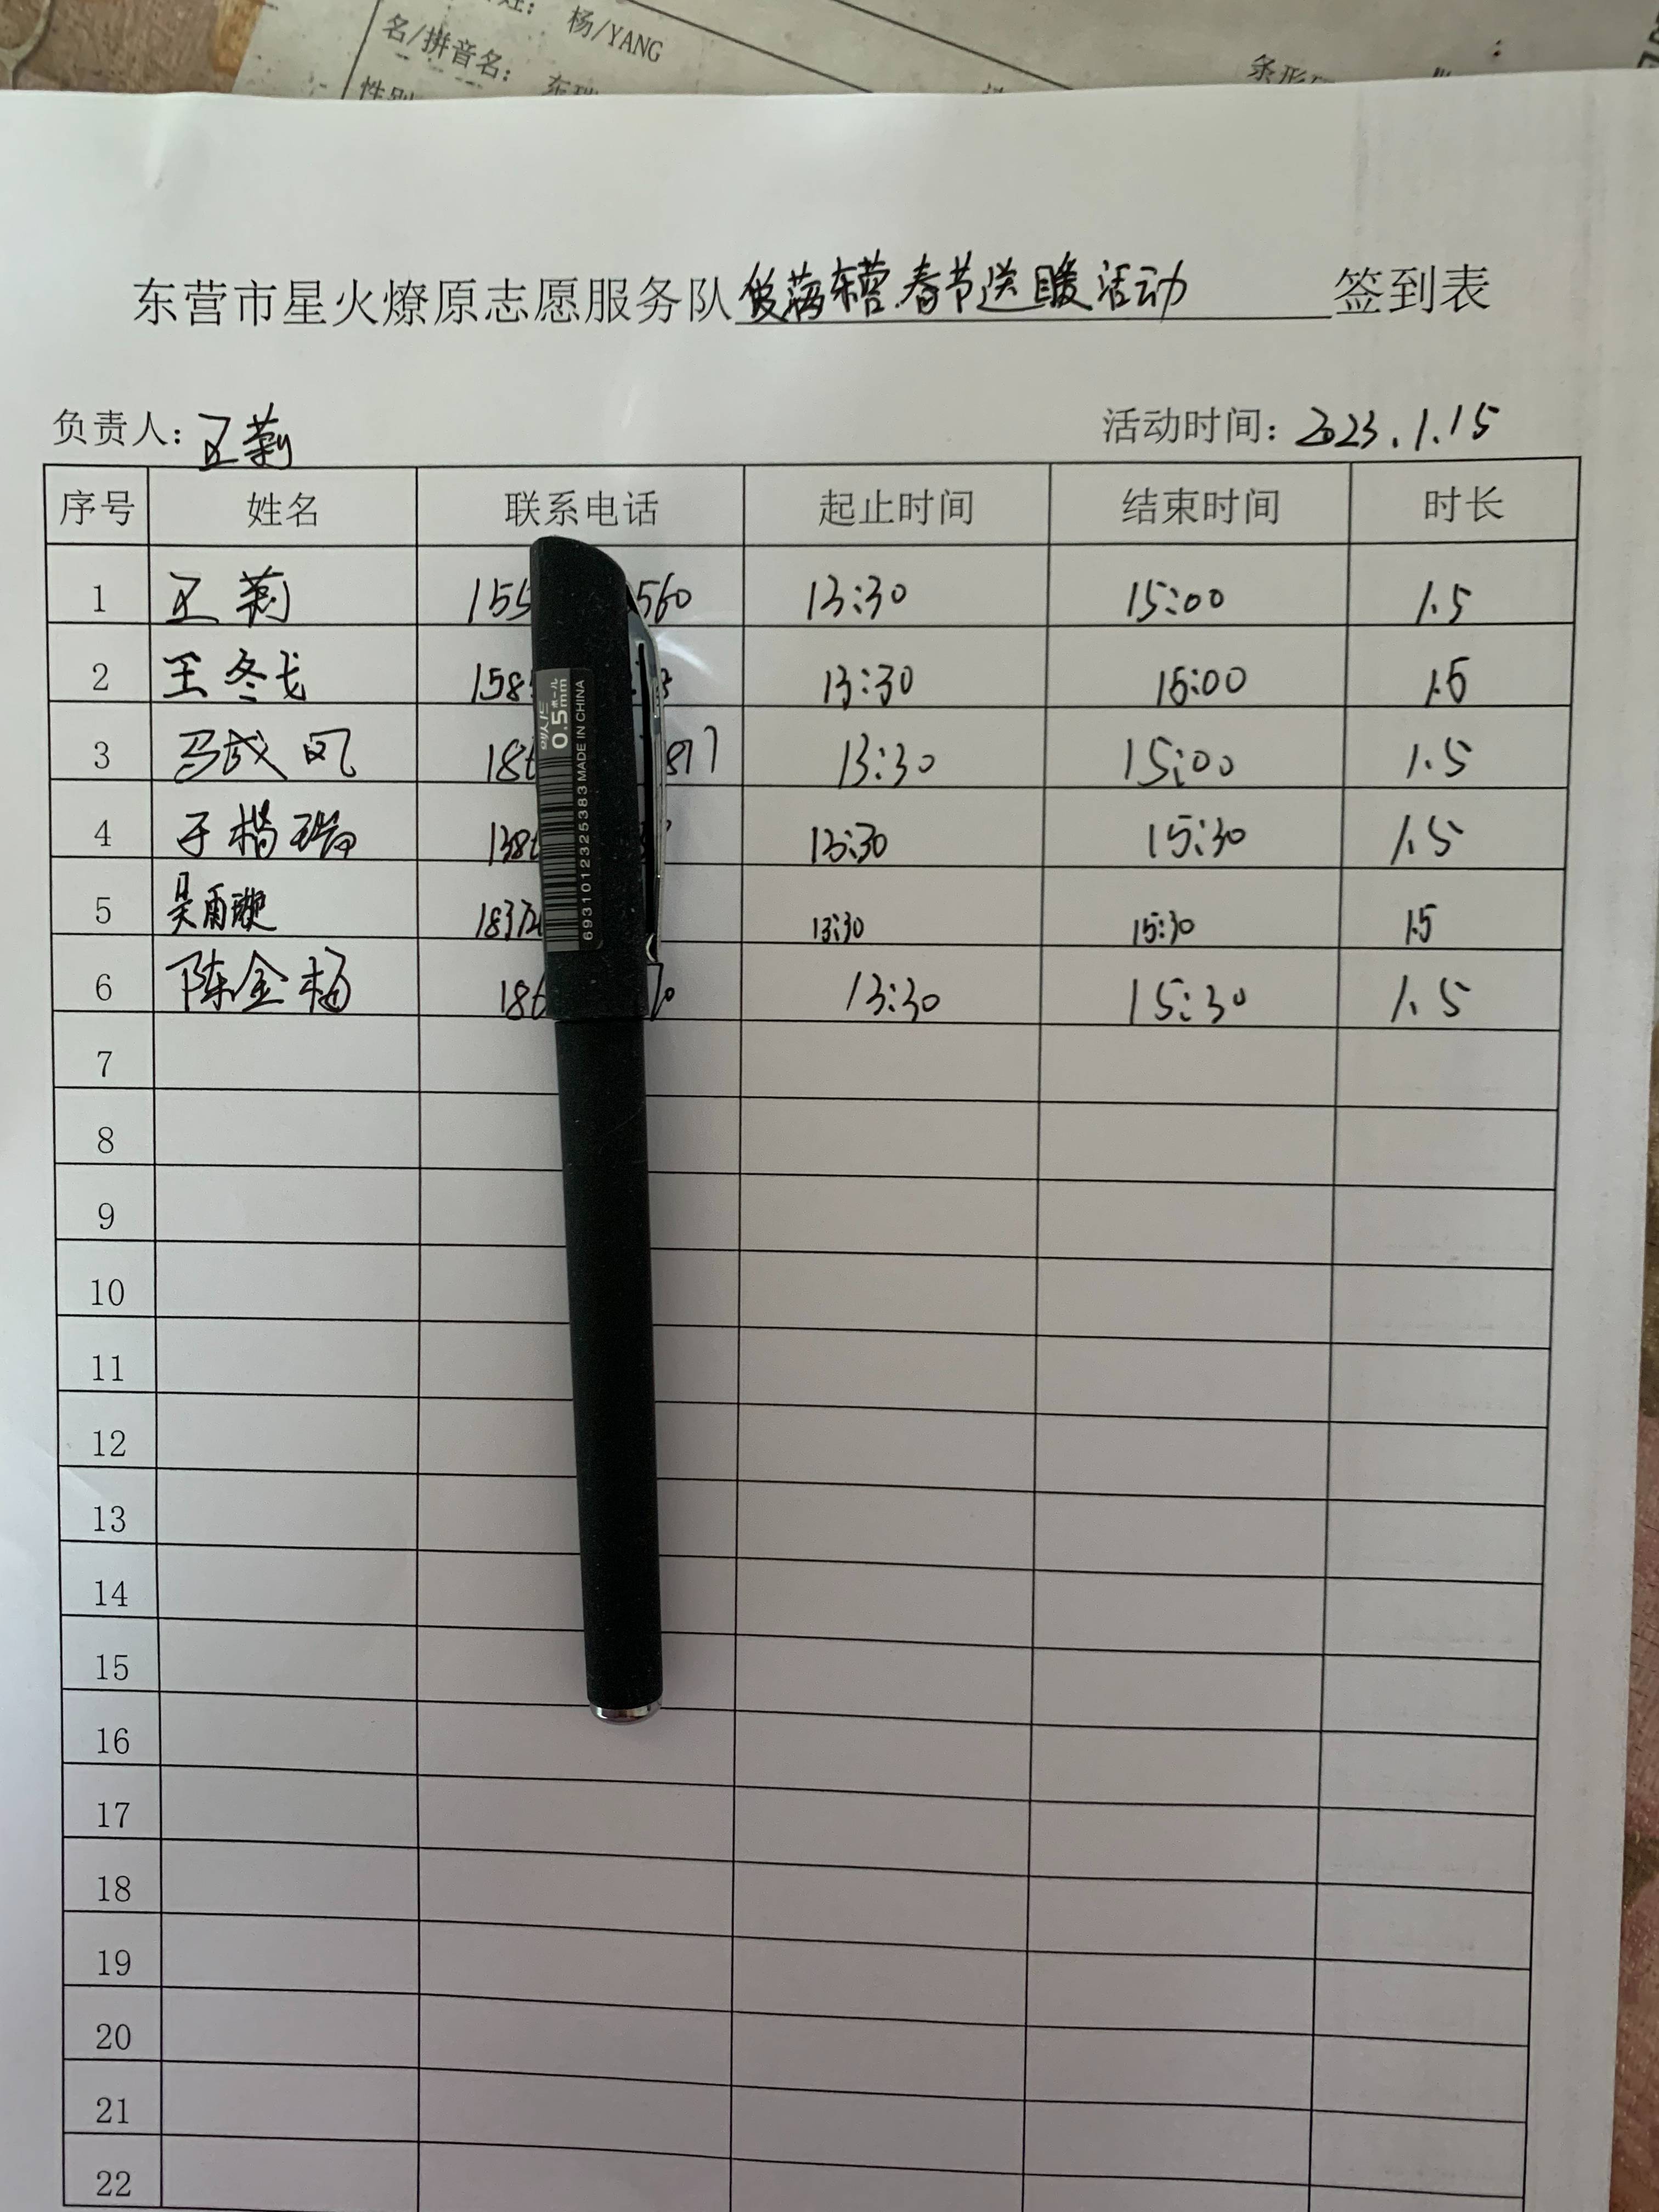 杨/YANG
名/拼音名:
性别
条形
东营市星火燎原志愿服务队 东营.春节送暖活动 签到表
负责人: 莉 活动时间: 2023.1.15
序号 姓名 联系电话 起止时间 结束时间 时长
1 莉 155 560 13:30 15:00 1.5
2 王冬戈 158 13:30 15:00 1.5
3 马成凤 18 817 13:30 15:00 1.5
4 于楷瑞 138 13:30 15:30 1.5
5 吴雨璇 1837 13:30 15:30 1.5
6 陈金梅 18 13:30 15:30 1.5
7
8
9
10
11
12
13
14
15
16
17
18
19
20
21
22
0.5mm
MADE IN CHINA
6931012325383